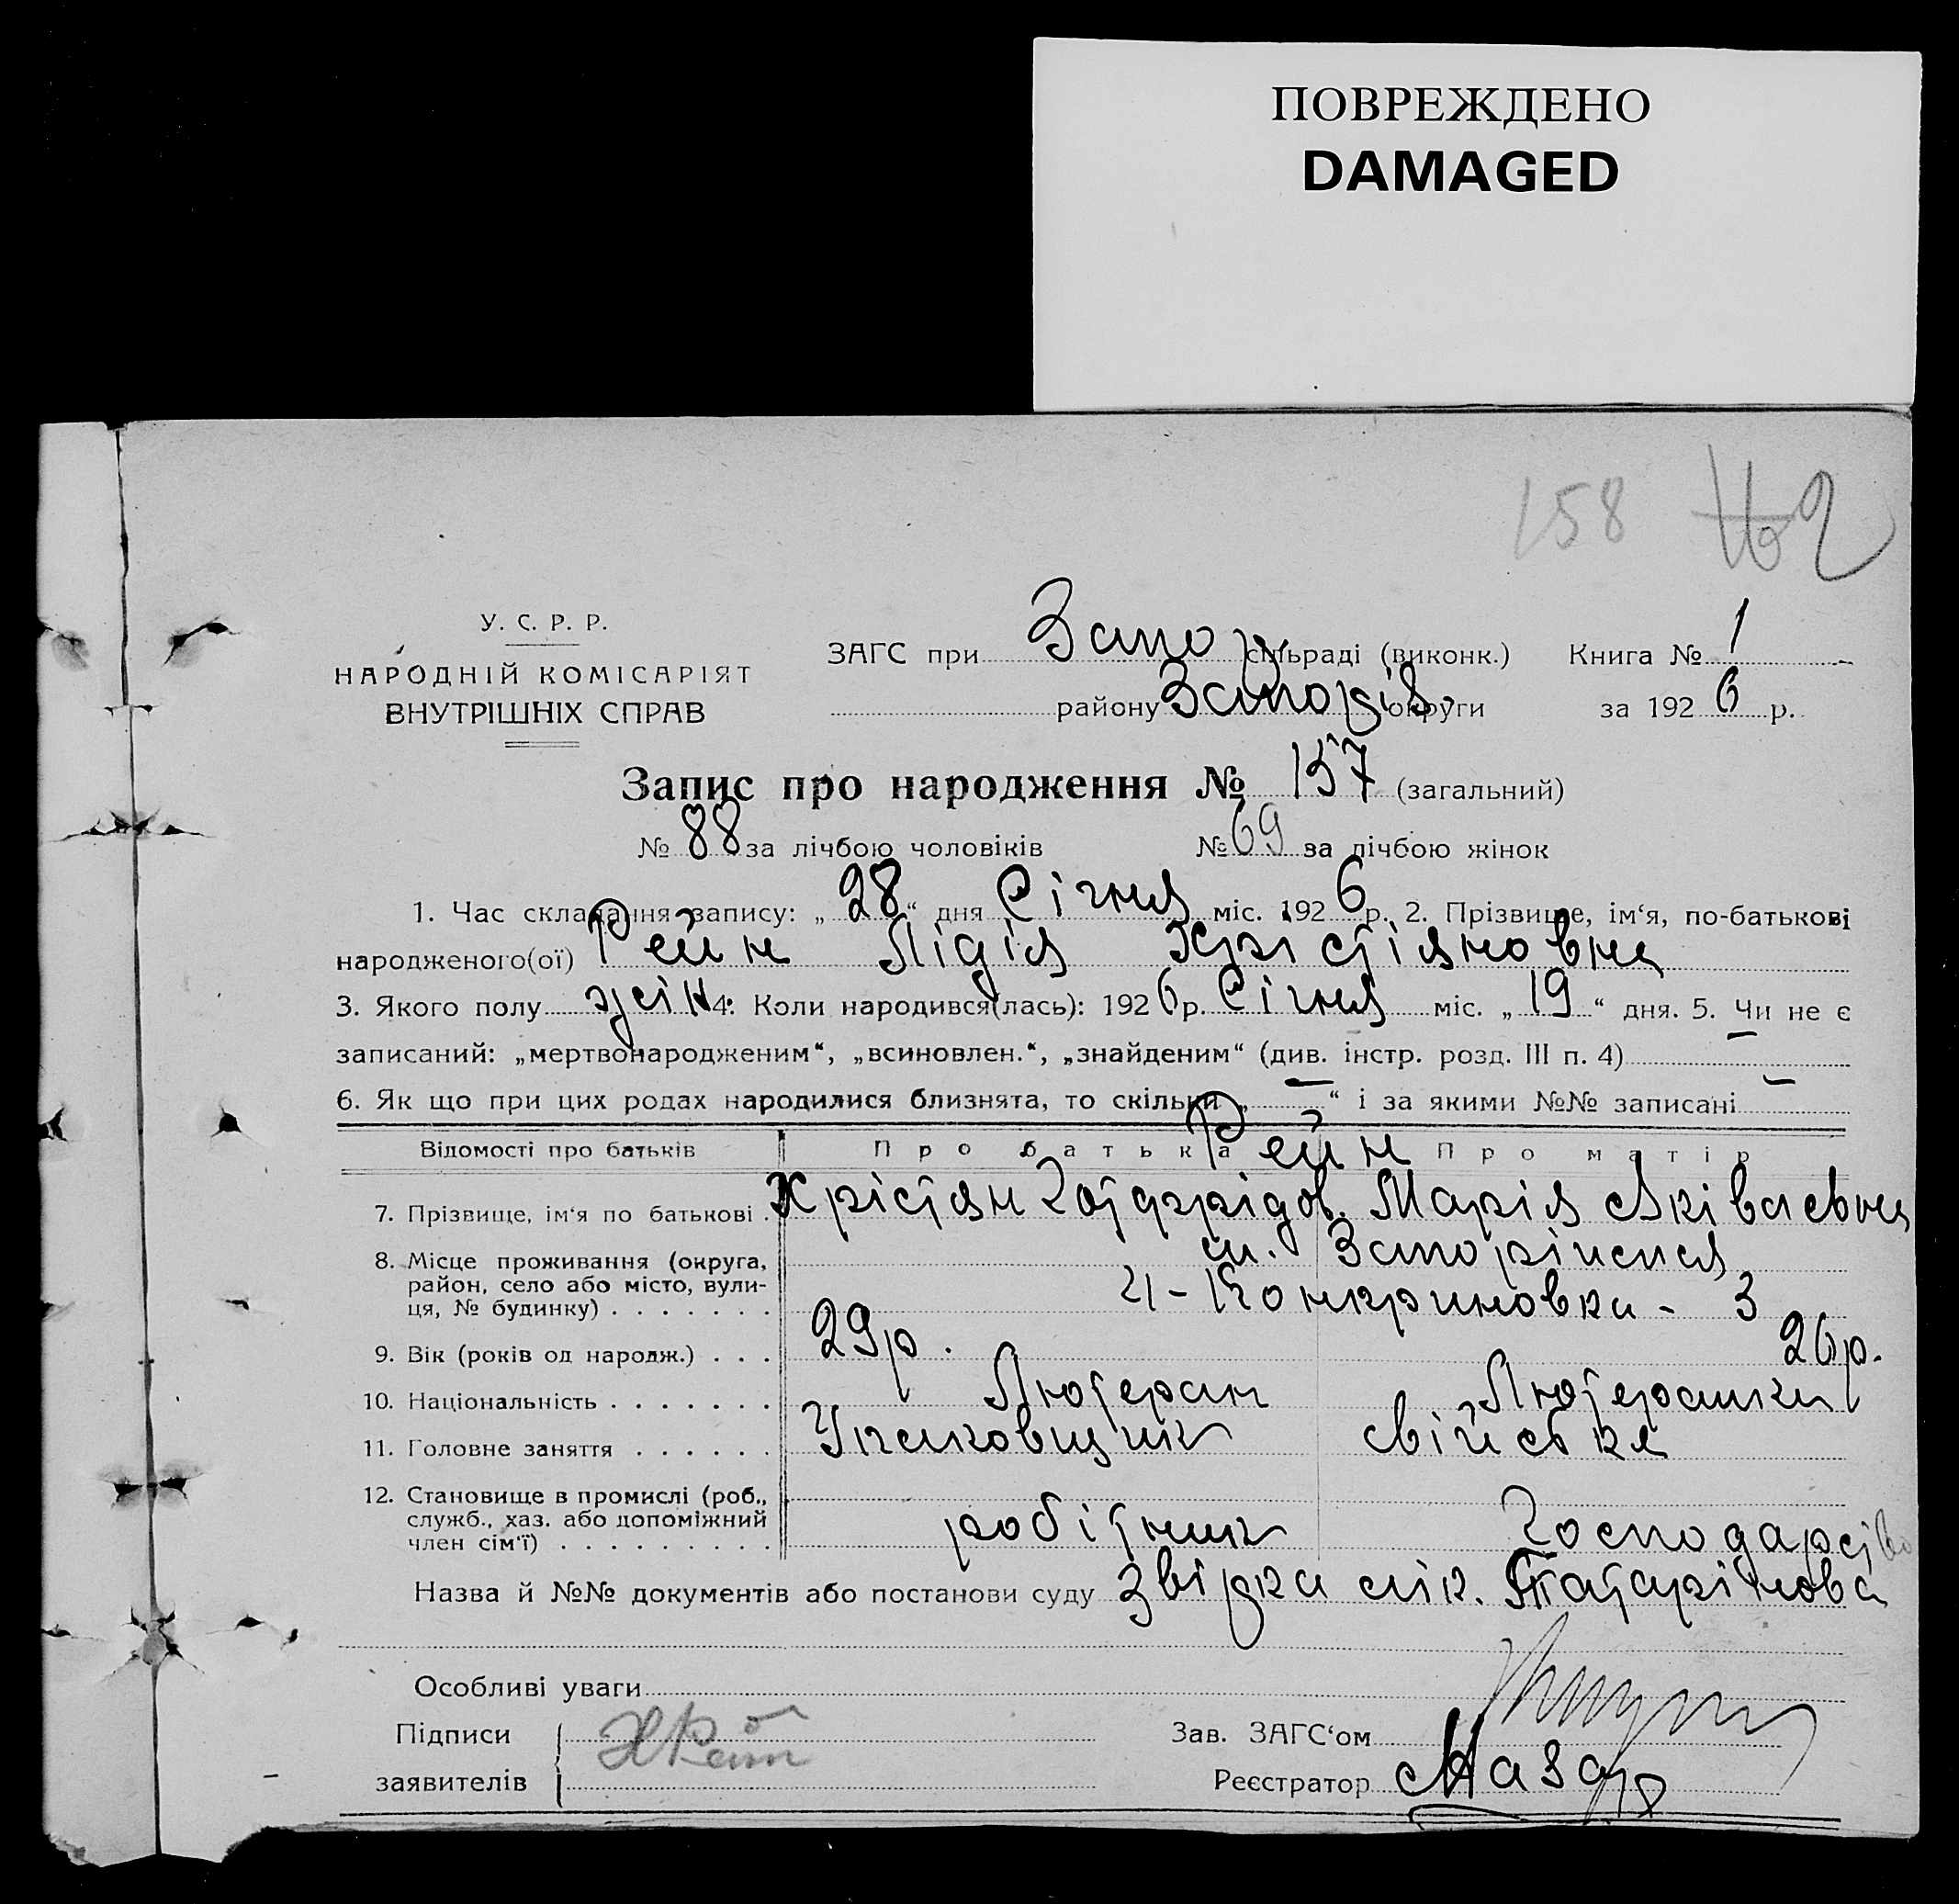 ПОВРЕЖДЕНО
DAMAGED
158
У. С. Р. Р.
НАРОДНІЙ КОМІСАРІЯТ
ВНУТРІШНІХ СПРАВ
ЗАГС при Запор сільраді (виконк.) Книга № 1
району Запоріз. округи за 1926 р.
Запис про народження № 157 (загальний)
№ 88 за лічбою чоловіків № 69 за лічбою жінок
1. Час складання запису: „28“ дня Січня міс. 1926 р. 2. Прізвище, ім‘я, по-батькові
народженого(ої) Рейн Лідія Хрістіяновна
3. Якого полу жін. 4. Коли народився(лась): 1926 р. Січня міс. „19“ дня. 5. Чи не є
записаний: „мертвонародженим“, „всиновлен.“, „знайденим“ (див. інстр. розд. III п. 4) —
6. Як що при цих родах народилися близнята, то скільки „—“ і за якими №№ записані —
Відомості про батьків Про батька Рейн Про матір
7. Прізвище, ім‘я по батькові . Хрістян Готфрідов. Марія Аківаевна
8. Місце проживання (округа, м. Запоріжжя
район, село або місто, вули-
ця, № будинку) . . . . . . . 3
9. Вік (років од народж.) . . . 29 р. 26 р.
10. Національність . . . . . . . Лютеран Лютеранка
11. Головне заняття . . . . . . Упаковщик свійська
12. Становище в промислі (роб.,
служб., хаз. або допоміжний
член сім‘ї) . . . . . . . . . робітник господарство
Назва й №№ документів або постанови суду Звірка лік. Татарінова
Особливі уваги
Підписи
заявителів
Зав. ЗАГС‘ом
Реєстратор Мазар